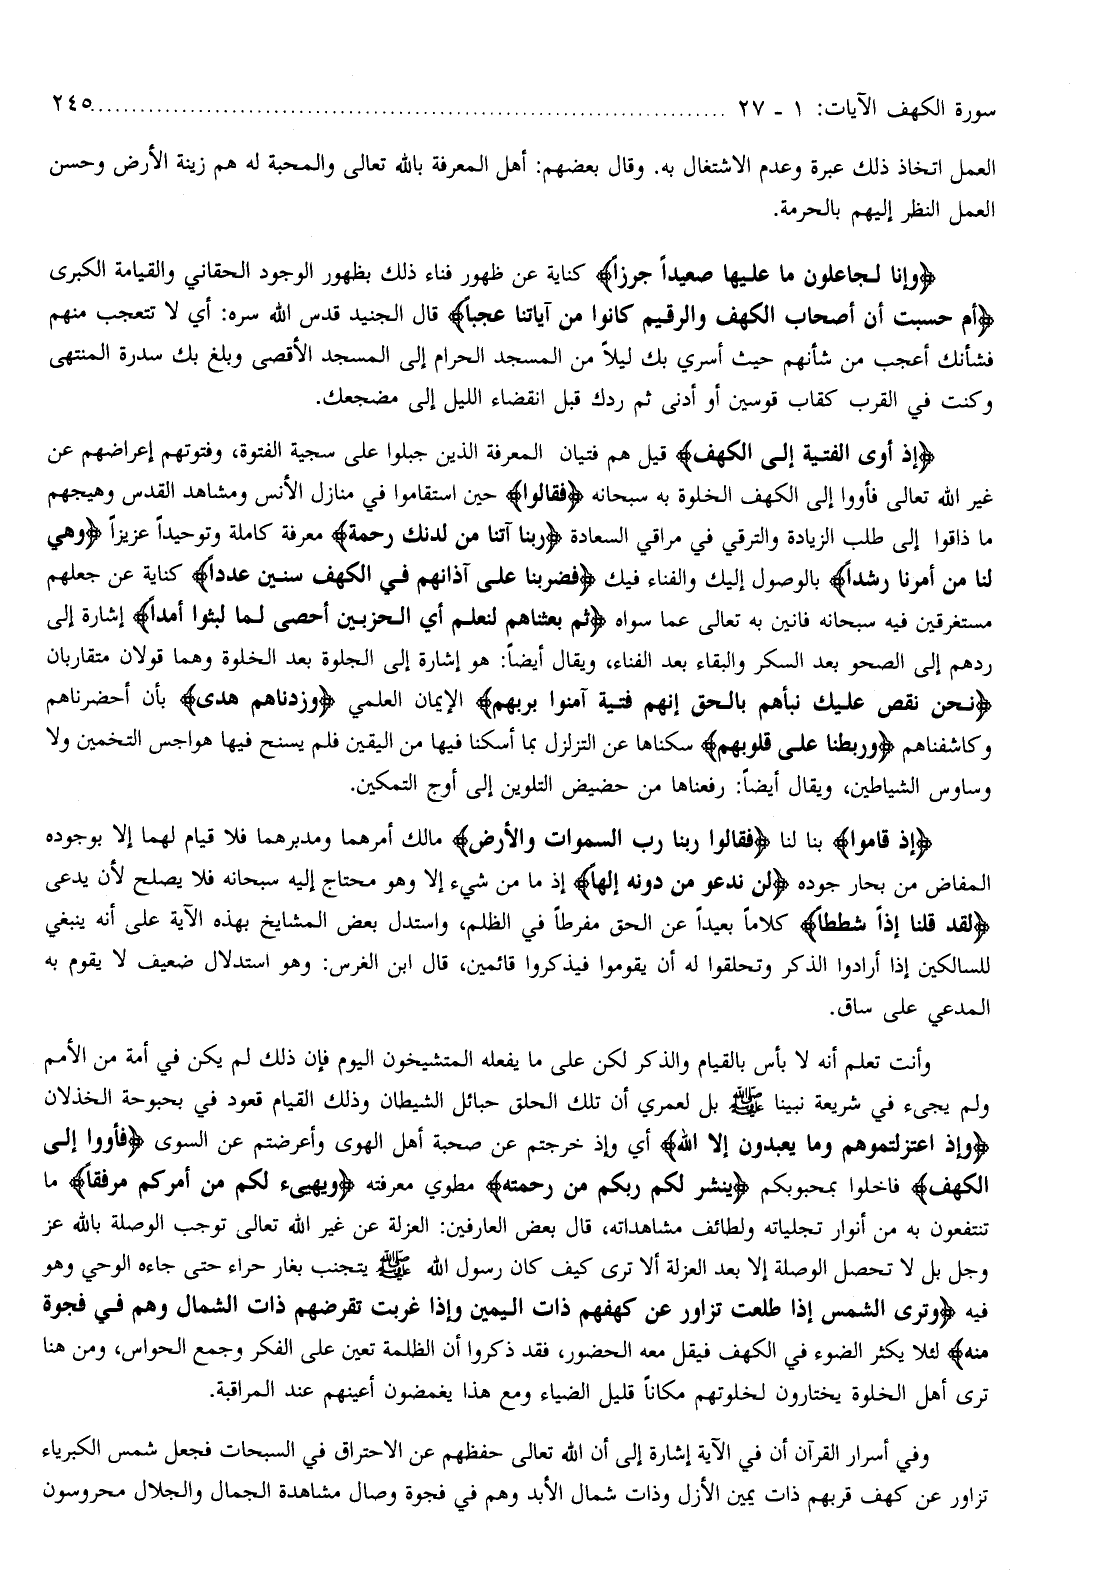 سورة الكهف الآيات: ١ - ٢٧ ........................................................................... ٢٤٥
العمل اتخاذ ذلك عبرة وعدم الاشتغال به. وقال بعضهم: أهل المعرفة بالله تعالى والمحبة له هم زينة الأرض وحسن
العمل النظر إليهم بالحرمة.
﴿وإنا لجاعلون ما عليها صعيداً جرزاً﴾ كناية عن ظهور فناء ذلك بظهور الوجود الحقاني والقيامة الكبرى
﴿أم حسبت أن أصحاب الكهف والرقيم كانوا من آياتنا عجباً﴾ قال الجنيد قدس الله سره: أي لا تتعجب منهم
فشأنك أعجب من شأنهم حيث أسري بك ليلاً من المسجد الحرام إلى المسجد الأقصى وبلغ بك سدرة المنتهى
وكنت في القرب كقاب قوسين أو أدنى ثم ردك قبل انقضاء الليل إلى مضجعك.
﴿إذ أوى الفتية إلى الكهف﴾ قيل هم فتيان المعرفة الذين جبلوا على سجية الفتوة، وفتوتهم إعراضهم عن
غير الله تعالى فأووا إلى الكهف الخلوة به سبحانه ﴿فقالوا﴾ حين استقاموا في منازل الأنس ومشاهد القدس وهيجهم
ما ذاقوا إلى طلب الزيادة والترقي في مراقي السعادة ﴿ربنا آتنا من لدنك رحمة﴾ معرفة كاملة وتوحيداً عزيزاً ﴿وهي
لنا من أمرنا رشداً﴾ بالوصول إليك والفناء فيك ﴿فضربنا على آذانهم في الكهف سنين عدداً﴾ كناية عن جعلهم
مستغرقين فيه سبحانه فانين به تعالى عما سواه ﴿ثم بعثناهم لنعلم أي الحزبين أحصى لما لبثوا أمداً﴾ إشارة إلى
ردهم إلى الصحو بعد السكر والبقاء بعد الفناء، ويقال أيضاً: هو إشارة إلى الجلوة بعد الخلوة وهما قولان متقاربان
﴿نحن نقص عليك نبأهم بالحق إنهم فتية آمنوا بربهم﴾ الإيمان العلمي ﴿وزدناهم هدى﴾ بأن أحضرناهم
وكاشفناهم ﴿وربطنا على قلوبهم﴾ سكناها عن التزلزل بما أسكنا فيها من اليقين فلم يسنح فيها هواجس التخمين ولا
وساوس الشياطين، ويقال أيضاً: رفعناها من حضيض التلوين إلى أوج التمكين.
﴿إذ قاموا﴾ بنا لنا ﴿فقالوا ربنا رب السموات والأرض﴾ مالك أمرهما ومدبرهما فلا قيام لهما إلا بوجوده
المفاض من بحار جوده ﴿لن ندعو من دونه إلهاً﴾ إذ ما من شيء إلا وهو محتاج إليه سبحانه فلا يصلح لأن يدعى
﴿لقد قلنا إذاً شططاً﴾ كلاماً بعيداً عن الحق مفرطاً في الظلم، واستدل بعض المشايخ بهذه الآية على أنه ينبغي
للسالكين إذا أرادوا الذكر وتحلقوا له أن يقوموا فيذكروا قائمين، قال ابن الغرس: وهو استدلال ضعيف لا يقوم به
المدعي على ساق.
وأنت تعلم أنه لا بأس بالقيام والذكر لكن على ما يفعله المتشيخون اليوم فإن ذلك لم يكن في أمة من الأمم
ولم يجىء في شريعة نبينا ﷺ بل لعمري أن تلك الحلق حبائل الشيطان وذلك القيام قعود في بحبوحة الخذلان
﴿وإذ اعتزلتموهم وما يعبدون إلا الله﴾ أي وإذ خرجتم عن صحبة أهل الهوى وأعرضتم عن السوى ﴿فأووا إلى
الكهف﴾ فاخلوا بمحبوبكم ﴿ينشر لكم ربكم من رحمته﴾ مطوي معرفته ﴿ويهيىء لكم من أمركم مرفقاً﴾ ما
تنتفعون به من أنوار تجلياته ولطائف مشاهداته، قال بعض العارفين: العزلة عن غير الله تعالى توجب الوصلة بالله عز
وجل بل لا تحصل الوصلة إلا بعد العزلة ألا ترى كيف كان رسول الله ﷺ يتجنب بغار حراء حتى جاءه الوحي وهو
فيه ﴿وترى الشمس إذا طلعت تزاور عن كهفهم ذات اليمين وإذا غربت تقرضهم ذات الشمال وهم في فجوة
منه﴾ لئلا يكثر الضوء في الكهف فيقل معه الحضور، فقد ذكروا أن الظلمة تعين على الفكر وجمع الحواس، ومن هنا
ترى أهل الخلوة يختارون لخلوتهم مكاناً قليل الضياء ومع هذا يغمضون أعينهم عند المراقبة.
وفي أسرار القرآن أن في الآية إشارة إلى أن الله تعالى حفظهم عن الاحتراق في السبحات فجعل شمس الكبرياء
تزاور عن كهف قربهم ذات يمين الأزل وذات شمال الأبد وهم في فجوة وصال مشاهدة الجمال والجلال محروسون